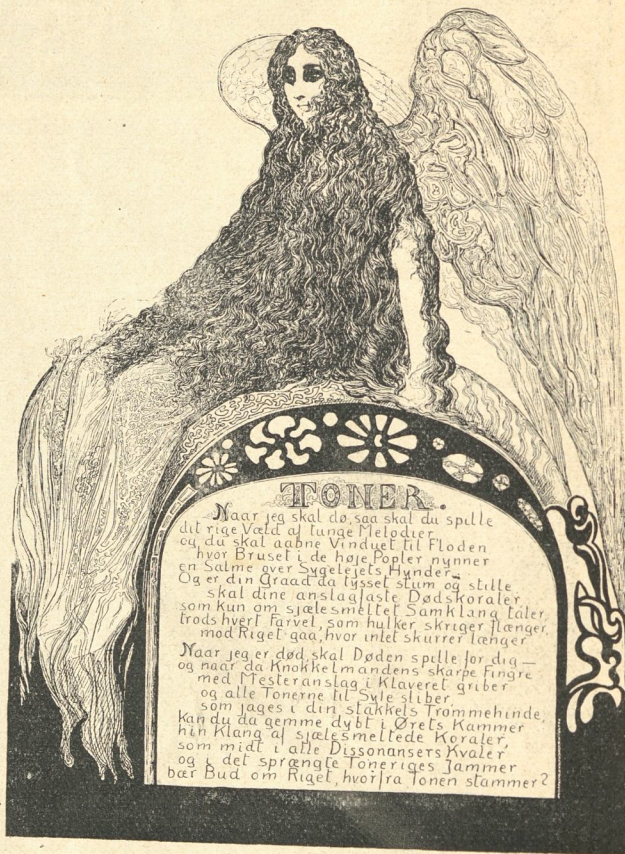 TONER.
Naar jeg skal dø, saa skal du spille
dit rige Væld af tunge Melodier
og du skal aabne Vinduet til Floden
hvor Bruset i de høje Popler nynner
en Salme over Sygelejets Hynder_
Og er din Graad da tysset stum og stille
skal dine anslagfaste Dødskoraler,
som kun om sjælesmeltet Samklang taler,
trods hvert Farvel, som hulker skriger flænger,
mod Riget gaa, hvor intet skurrer længer
Naar jeg er død, skal Døden spille for dig —
og naar da Knokkelmandens skarpe Fingre
med Mesteranslag i Klaveret griber
og alle Tonerne til Syle sliber,
som jages i din stakkels Trommehinde,
Kan du da gemme dybt i Ørets Kammer
hin Klang af sjælesmeltede Koraler,
som midt i alle Dissonansers Kvaler
og i det sprængte Toneriges Jammer
bær Bud om Riget, hvorfra Tonen stammer?